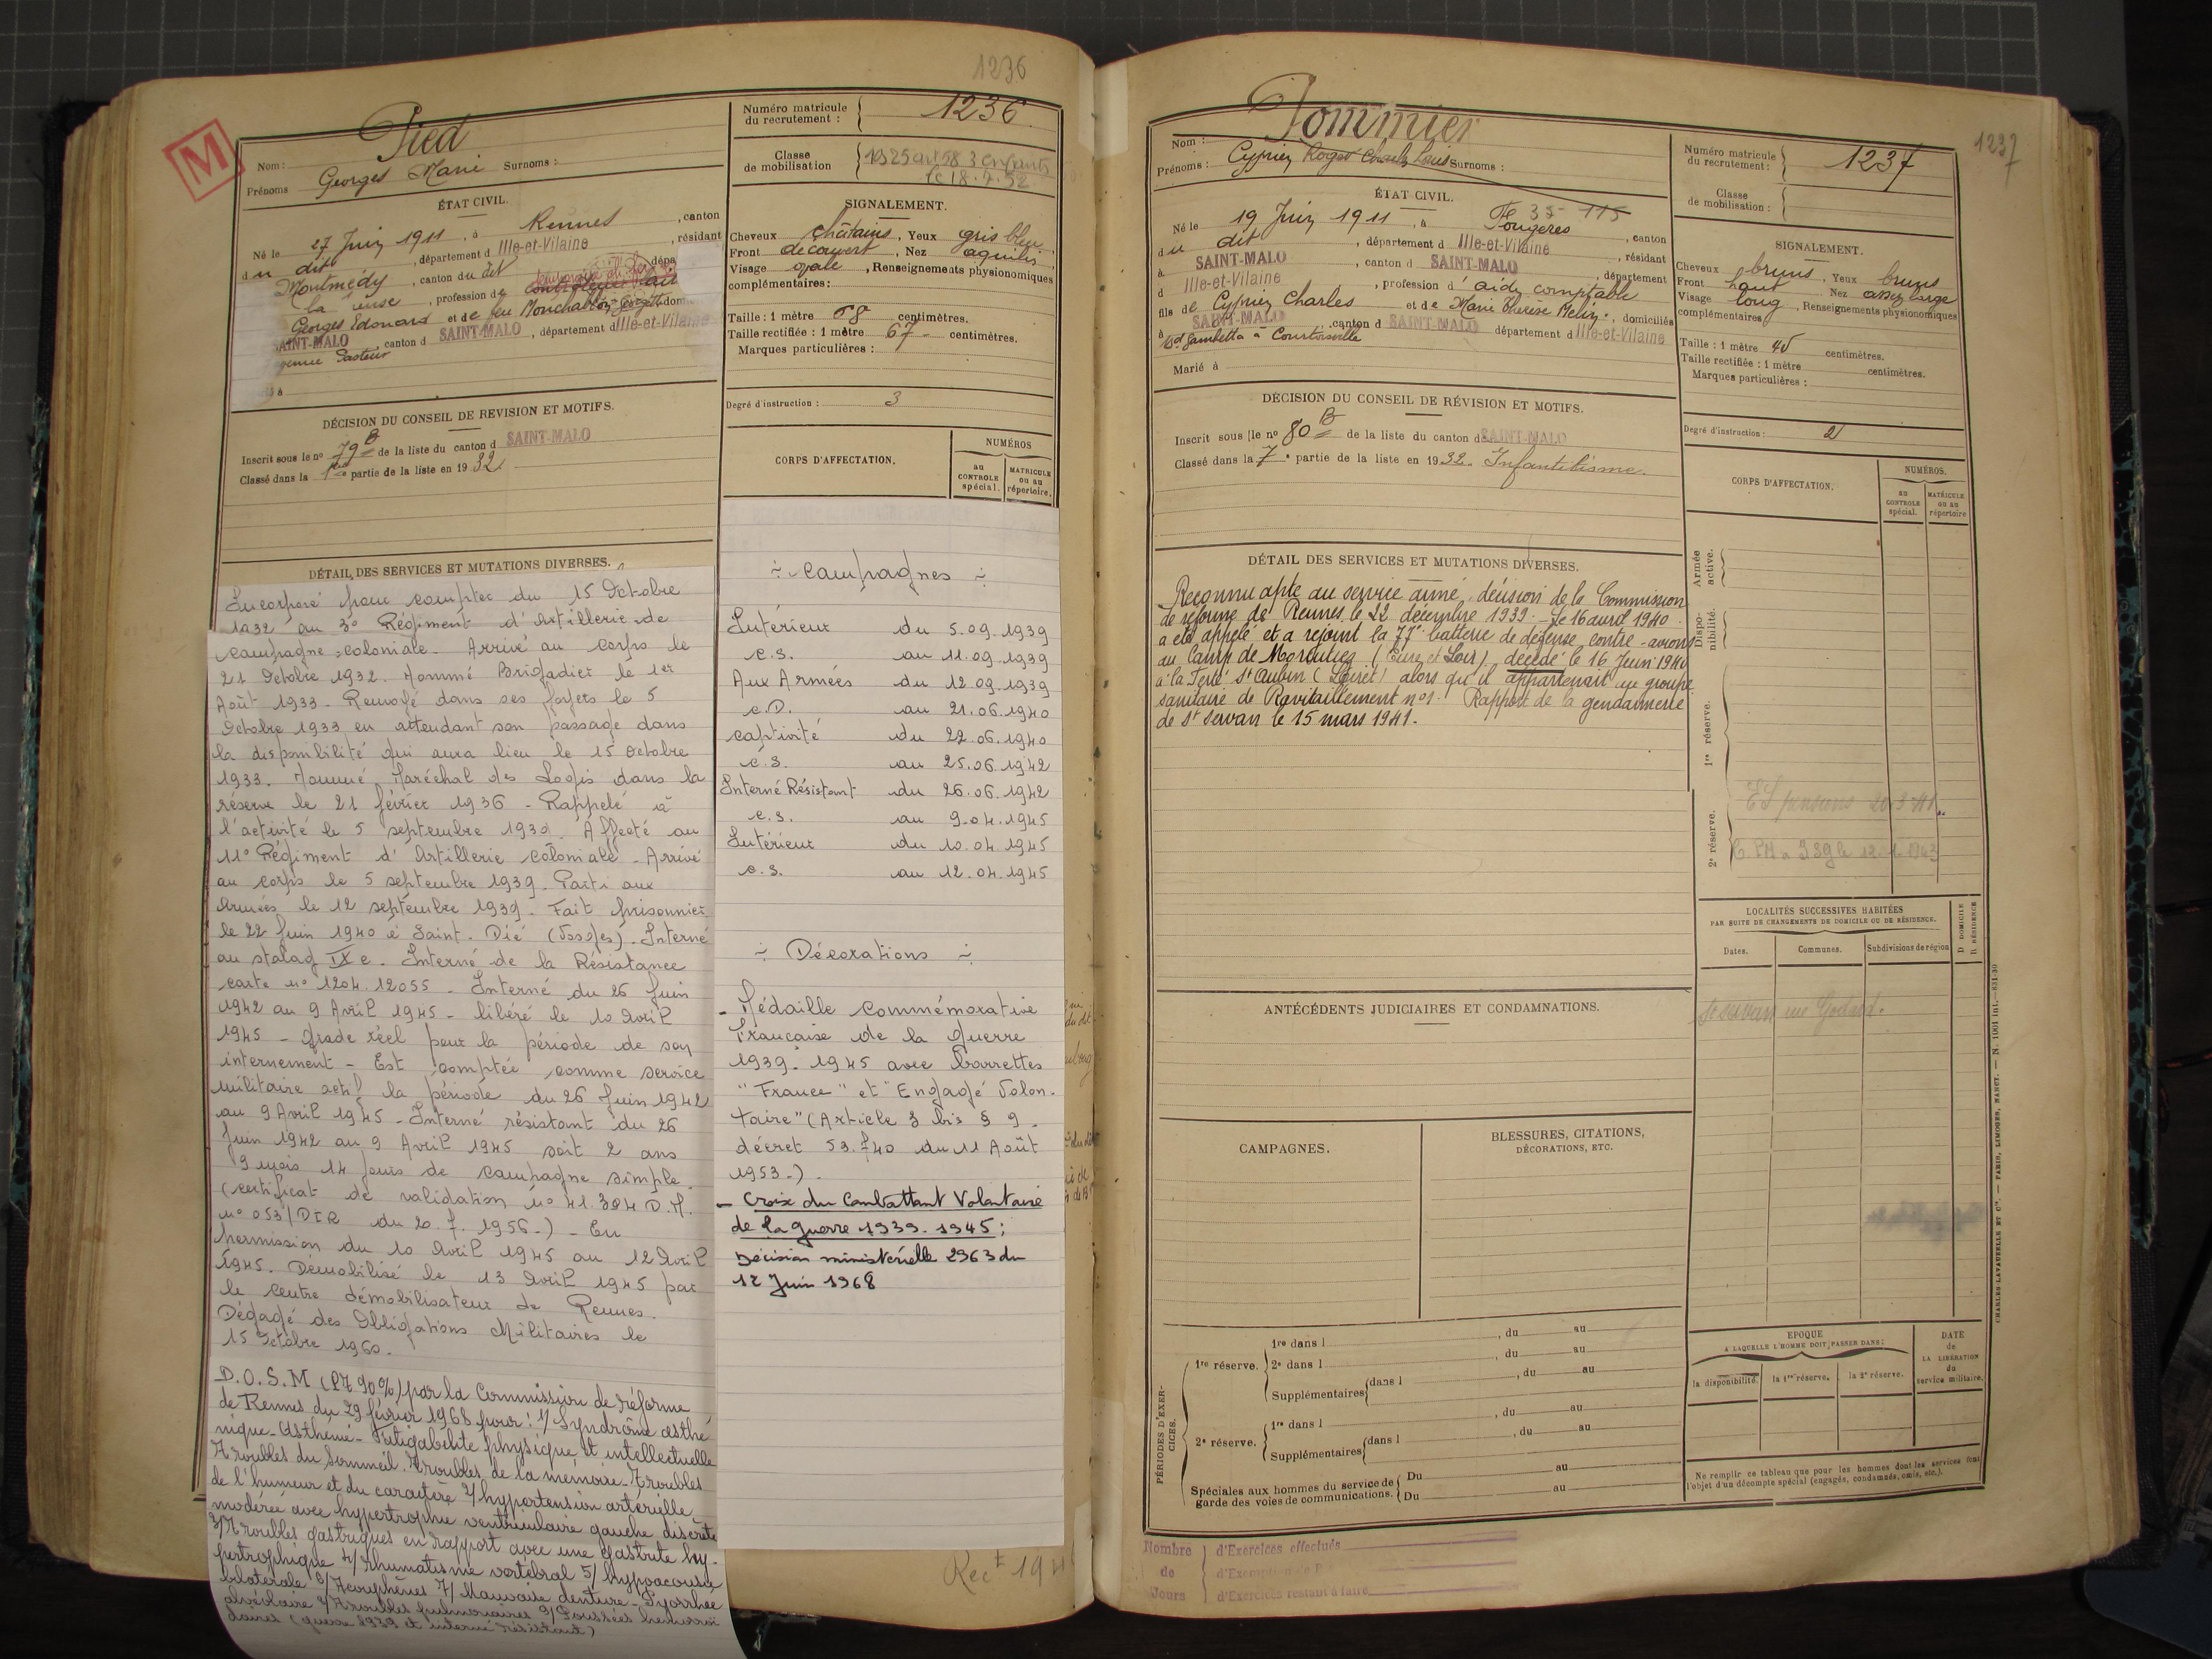 1236
M
Pied
Nom :
Prénoms Georges Marie Surnoms :
ÉTAT CIVIL.
Né le 27 Juin 1911, à Rennes, canton
du dit, département d Ille-et-Vilaine, résidant
Montmédy, canton du dit, dépa
la Meuse, profession de
Georges Edouard et de feu Monchablon Georgette dom
SAINT-MALO, canton d SAINT-MALO, département d Ille-et-Vilaine
Pasteur
DÉCISION DU CONSEIL DE REVISION ET MOTIFS.
Inscrit sous le no 79 B de la liste du canton d SAINT-MALO
Classé dans la 1re partie de la liste en 1932
Numéro matricule
du recrutement : 1236
Classe
de mobilisation 1925 art 58 3 enfants
le 18.7.52
SIGNALEMENT.
Cheveux châtains, Yeux gris bleu
Front découvert, Nez aquilin
Visage ovale, Renseignements physionomiques
complémentaires :
Taille : 1 mètre 68 centimètres.
Taille rectifiée : 1 mètre 67 centimètres.
Marques particulières :
Degré d'instruction : 3
CORPS D'AFFECTATION.
NUMÉROS
au
CONTROLE
spécial.
MATRICULE
ou au
répertoire.
DÉTAIL DES SERVICES ET MUTATIONS DIVERSES.
Incorporé pour compter du 15 Octobre
1932 au 3° Régiment d'Artillerie de
campagne coloniale - Arrivé au corps le
21 Octobre 1932. Nommé Brigadier le 1er
Août 1933 - Renvoyé dans ses foyers le 5
Octobre 1933 en attendant son passage dans
la disponibilité qui aura lieu le 15 octobre
1933. Nommé Maréchal des Logis dans la
réserve le 21 février 1936 - Rappelé à
l'activité le 5 septembre 1939. Affecté au
11° Régiment d'Artillerie coloniale - Arrivé
au corps le 5 septembre 1939. Parti aux
Armées le 12 septembre 1939 - Fait prisonnier
le 22 Juin 1940 à Saint-Dié (Vosges) - Interné
au stalag IX c. Interné de la Résistance
carte n° 1204.12055 - Interné du 26 Juin
1942 au 9 Avril 1945 - libéré le 10 Avril
1945 - Grade réel pour la période de son
internement - Est comptée comme service
militaire actif la période du 26 Juin 1942
au 9 Avril 1945 - Interné résistant du 26
Juin 1942 au 9 Avril 1945 soit 2 ans
9 mois 14 jours de campagne simple.
(certificat de validation n° 41.384 D.M.
n° 053/DIR du 20.7.1956-) - En
permission du 10 Avril 1945 au 12 Avril
1945. Démobilisé le 13 Avril 1945 par
le centre démobilisateur de Rennes.
Dégagé des Obligations Militaires le
15 Octobre 1960.
D.O.S.M (P7 90%) par la Commission de réforme
de Rennes du 29 février 1968 pour : 1/ Syndrôme asthé
nique - Asthénie - Fatigabilité physique et intellectuelle
Troubles du sommeil. Troubles de la mémoire - Troubles
de l'humeur et du caractère 2/ hypertension artérielle
modérée avec hypertrophie ventriculaire gauche discrète
3/ Troubles gastriques en rapport avec une gastrite hy-
pertrophique 4/ Rhumatisme vertébral 5/ hypoacousie
bilatérale 6/ Acouphènes 7/ Mauvaise denture - Pyorrhée
alvéolaire 8/ Troubles pulmonaires 9/ Poussées hémorroï
daires (guerre 1939 et interné résistant)
÷ Campagnes ÷
Intérieur du 5.09.1939
c.s. au 11.09.1939
Aux Armées du 12.09.1939
c.D. au 21.06.1940
captivité du 22.06.1940
c.s. au 25.06.1942
Interné Résistant du 26.06.1942
c.s. au 9.04.1945
Intérieur du 10.04.1945
c.s. au 12.04.1945
÷ Décorations ÷
- Médaille Commémorative
Française de la Guerre
1939-1945 avec barrettes
"France" et "Engagé Volon-
taire" (Article 3 bis § 9 -
décret 53.740 du 11 Août
1953-)
- Croix du Combattant Volontaire
de la guerre 1939.1945 ;
Décision ministérielle 2963 du
12 Juin 1968
1237
Pommier
Nom :
Prénoms : Cyprien Roger Charles Louis Surnoms :
ÉTAT CIVIL.
Né le 19 Juin 1911, à Fougères, canton
du dit, département d Ille-et-Vilaine, résidant
à SAINT-MALO, canton d SAINT-MALO, département
d Ille-et-Vilaine, profession d'aide comptable
fils de Cyprien Charles et de Marie Thérèse Melin, domiciliés
à SAINT-MALO canton d SAINT-MALO département d Ille-et-Vilaine
Bd Gambetta à Courtoisville
Marié à
DÉCISION DU CONSEIL DE RÉVISION ET MOTIFS.
Inscrit sous le no 80 B de la liste du canton d SAINT-MALO
Classé dans la 7e partie de la liste en 1932. Infantilisme.
Numéro matricule
du recrutement : 1237
Classe
de mobilisation :
SIGNALEMENT.
Cheveux bruns, Yeux bruns
Front haut Nez assez large
Visage long, Renseignements physionomiques
complémentaires
Taille : 1 mètre 45 centimètres.
Taille rectifiée : 1 mètre centimètres.
Marques particulières :
Degré d'instruction : 2
CORPS D'AFFECTATION.
NUMÉROS.
au
CONTROLE
spécial.
MATRICULE
ou au
répertoire
DÉTAIL DES SERVICES ET MUTATIONS DIVERSES.
Reconnu apte au service armé, décision de la Commission
de réforme de Rennes le 22 décembre 1939. - Le 16 avril 1940
a été appelé et a rejoint la 77e batterie de défense contre-avions
au Camp de Morancez (Eure et Loir) décédé le 16 Juin 1940
à la Ferté St Aubin (Loiret) alors qu'il appartenait au groupe
sanitaire de Ravitaillement n°1. Rapport de la gendarmerie
de St Servan le 15 mars 1941.
Armée
active.
Dispo-
nibilité.
1re réserve.
2e réserve.
LOCALITÉS SUCCESSIVES HABITÉES
PAR SUITE DE CHANGEMENTS DE DOMICILE OU DE RÉSIDENCE.
Dates.
Communes.
Subdivisions de région
D DOMICILE
R RÉSIDENCE
St Servan rue Godard.
ANTÉCÉDENTS JUDICIAIRES ET CONDAMNATIONS.
CAMPAGNES.
BLESSURES, CITATIONS,
DÉCORATIONS, ETC.
PÉRIODES D'EXER-
CICES.
1re réserve.
1re dans l , du au
2e dans l , du au
Supplémentaires dans l , du au
2e réserve.
1re dans l , du au
Supplémentaires dans l , du au
Spéciales aux hommes du service de
garde des voies de communications.
Du au
Du au
EPOQUE
A LAQUELLE L'HOMME DOIT PASSER DANS :
la disponibilité.
la 1re réserve.
la 2e réserve.
DATE
de
LA LIBÉRATION
du
service militaire.
Ne remplir ce tableau que pour les hommes dont les services font
l'objet d'un décompte spécial (engagés, condamnés, omis, etc.).
CHARLES-LAVAUZELLE ET Cie. — PARIS, LIMOGES, NANCY. — N. 1001 int.—831-30
Nombre
de
Jours
d'Exercices effectués
d'Exercices restant à faire